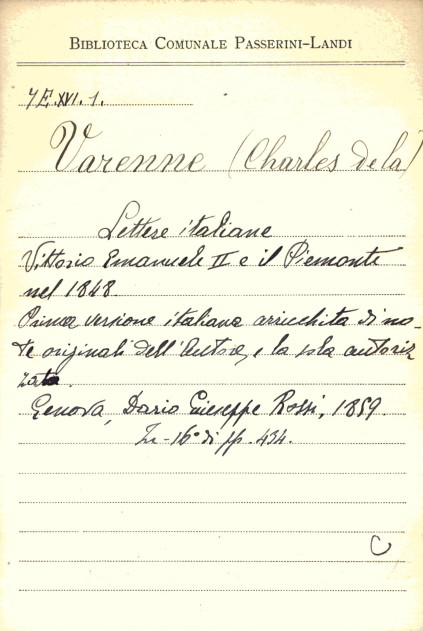 BIBLIOTECA COMUNALE PASSERINI-LANDI
7E.XVI.1.
Varenne (Charles de la)
Lettere italiane
Vittorio Emanuele II e il Piemonte
nel 1848.
Prima versione italiana arricchita di no-
te originali dell'Autore, e la sola autoriz
zata.
Genova, Dario Giuseppe Rossi, 1859.
In-16° di pp. 434.
C